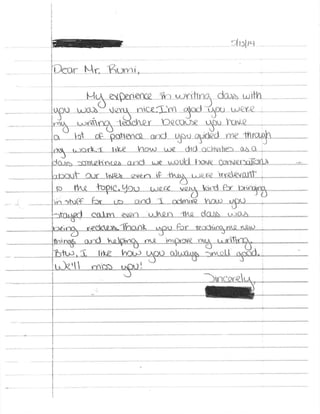 5/13/14
Dear Mr. Rumi,
My experience in writing class with
you was very nice. I'm glad you were
my writing teacher because you have
a lot of patience and you guided me through
my work. I like how we did activities as a
class sometimes and we would have conversations
about our lives even if they were irrelevant
to the topic. You were very kind for bringing
in stuff for us and I admire how you
stayed calm even when the class was
being reckless. Thank you for teaching me new
things and helping me improve my writing.
Btw, I like how you always smell good.
We'll miss you!
Sincerely,